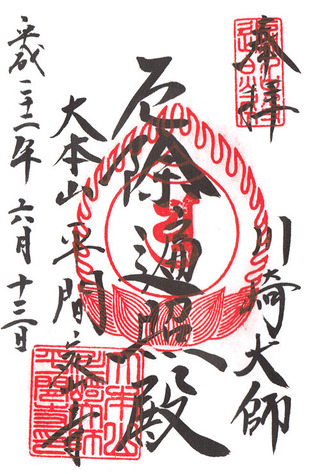 奉拝
川崎大師
厄除遍照殿
大本山平間寺
平成二十二年六月十三日